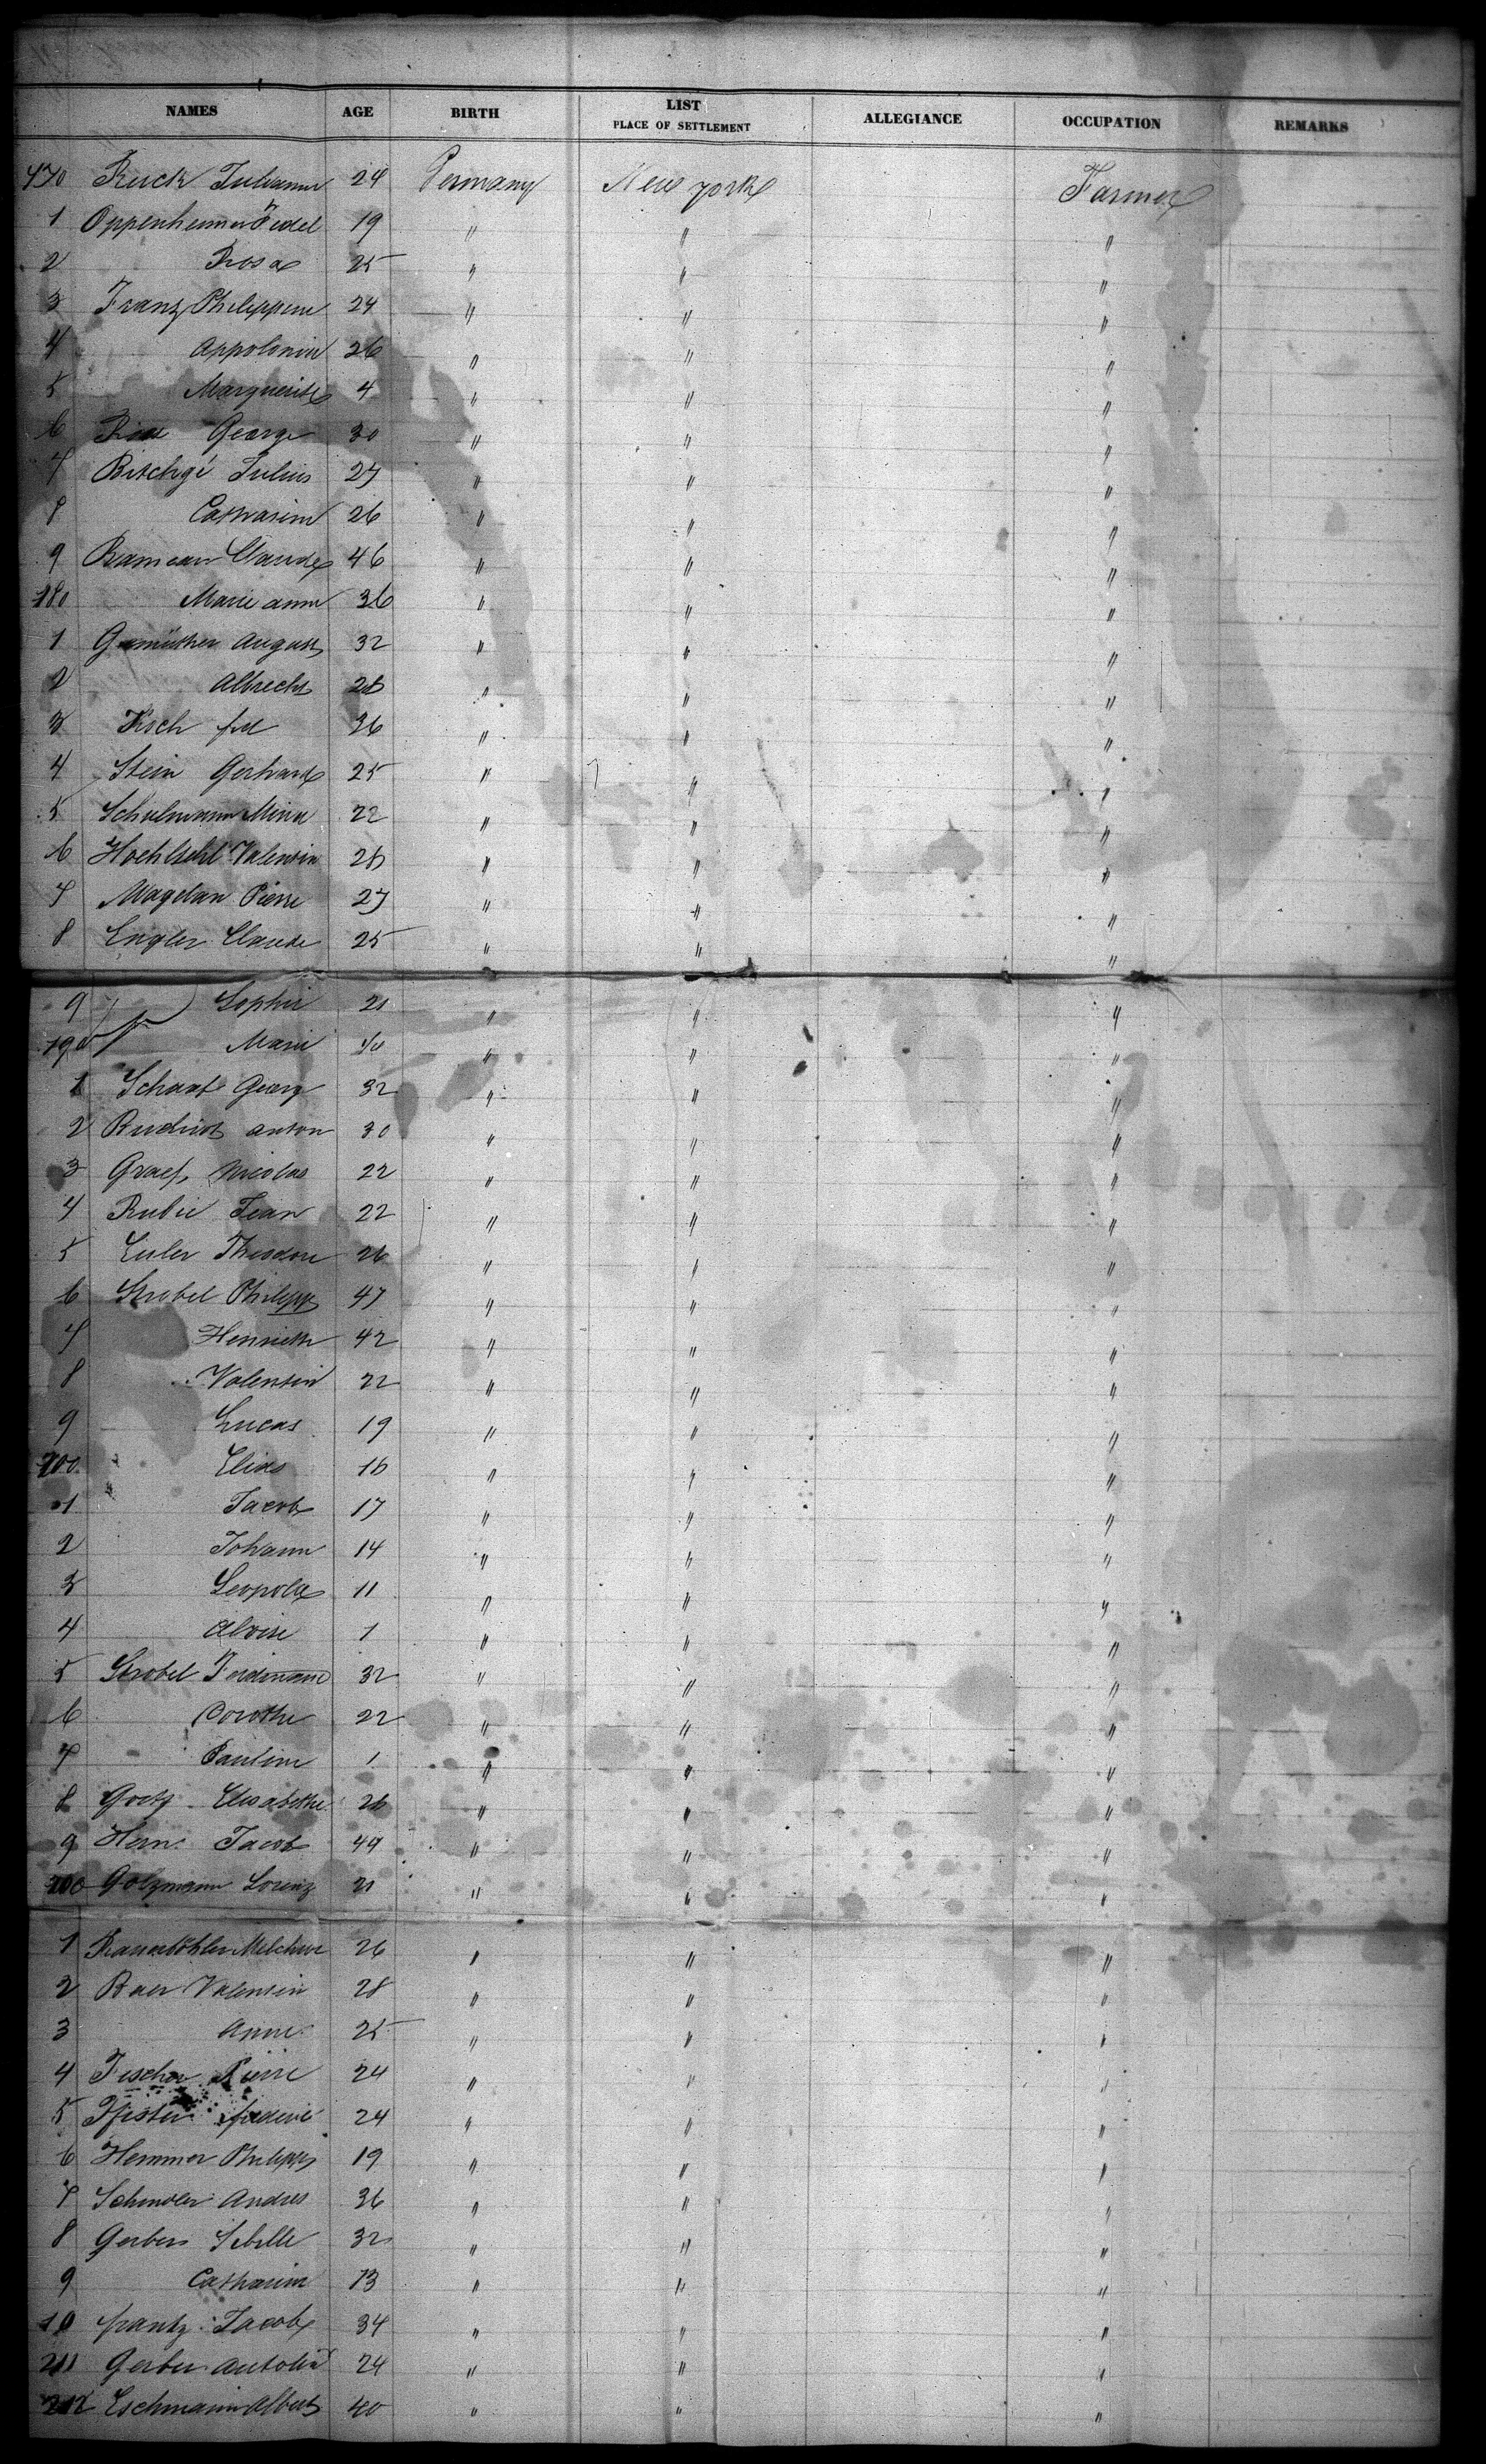 NAMES AGE BIRTH LIST PLACE OF SETTLEMENT ALLEGIANCE OCCUPATION REMARKS
170 Ruck 24 Germany New york Farmer
1 Oppenheimer Fidel 19 " " "
2 Rosa 25 " " "
3 Franz Philippine 24 " " "
4 Appolonia 26 " " "
5 Marguerite 4 " " "
6 George 30 " " "
7 Bitchgi Julius 27 " " "
8 Catharine 26 " " "
9 Rameau Claude 46 " " "
180 Marie ann 36 " " "
1 August 32 " " "
2 Albrecht 28 " " "
3 Fisch 36 " " "
4 Stein Gerhard 25 " " "
5 Schulmann Mina 22 " " "
6 Valentin 28 " " "
7 Magelan Pierre 27 " " "
8 Engler Claude 25 " " "
9 Sophie 21 " " "
190 Marie " " "
1 Schaab Georg 32 " " "
2 anton 30 " " "
3 Graef Nicolas 22 " " "
4 Rubie Jean 22 " " "
5 Euler Theodore 26 " " "
6 Strobel Philipp 47 " " "
7 Henriette 42 " " "
8 Valentin 22 " " "
9 Lucas 19 " " "
200 Elias 18 " " "
1 Jacob 17 " " "
2 Johann 14 " " "
3 Leopold 11 " " "
4 Aloise 1 " " "
5 Strobel Ferdinand 32 " " "
6 Dorothe 22 " " "
7 Pauline 1 " " "
8 Goetz Elisabethe 26 " " "
9 Hern Jacob 49 " " "
200 Golzmann Lorenz 21 " " "
1 Melchior 26 " " "
2 Baer Valentin 28 " " "
3 Anne 25 " " "
4 Fischer Pierre 24 " " "
5 Pfister frederic 24 " " "
6 Hemmer Philipp 19 " " "
7 Schmoler Andres 36 " " "
8 Gerber Sibille 32 " " "
9 Catharine 13 " " "
10 frantz Jacob 34 " " "
211 Gerber 24 " " "
212 Eschmann Albert 40 " " "